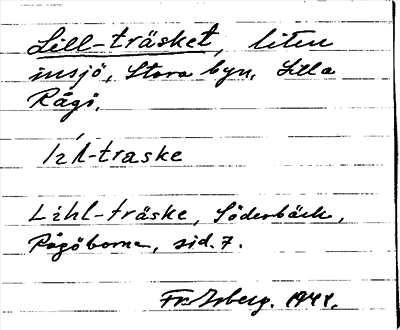 Lill-träsket, liten
insjö, Stora byn, Lilla
Rågö.
lil-traske
Lihl-träske, Söderbäck,
Rågöborna, sid. 7.